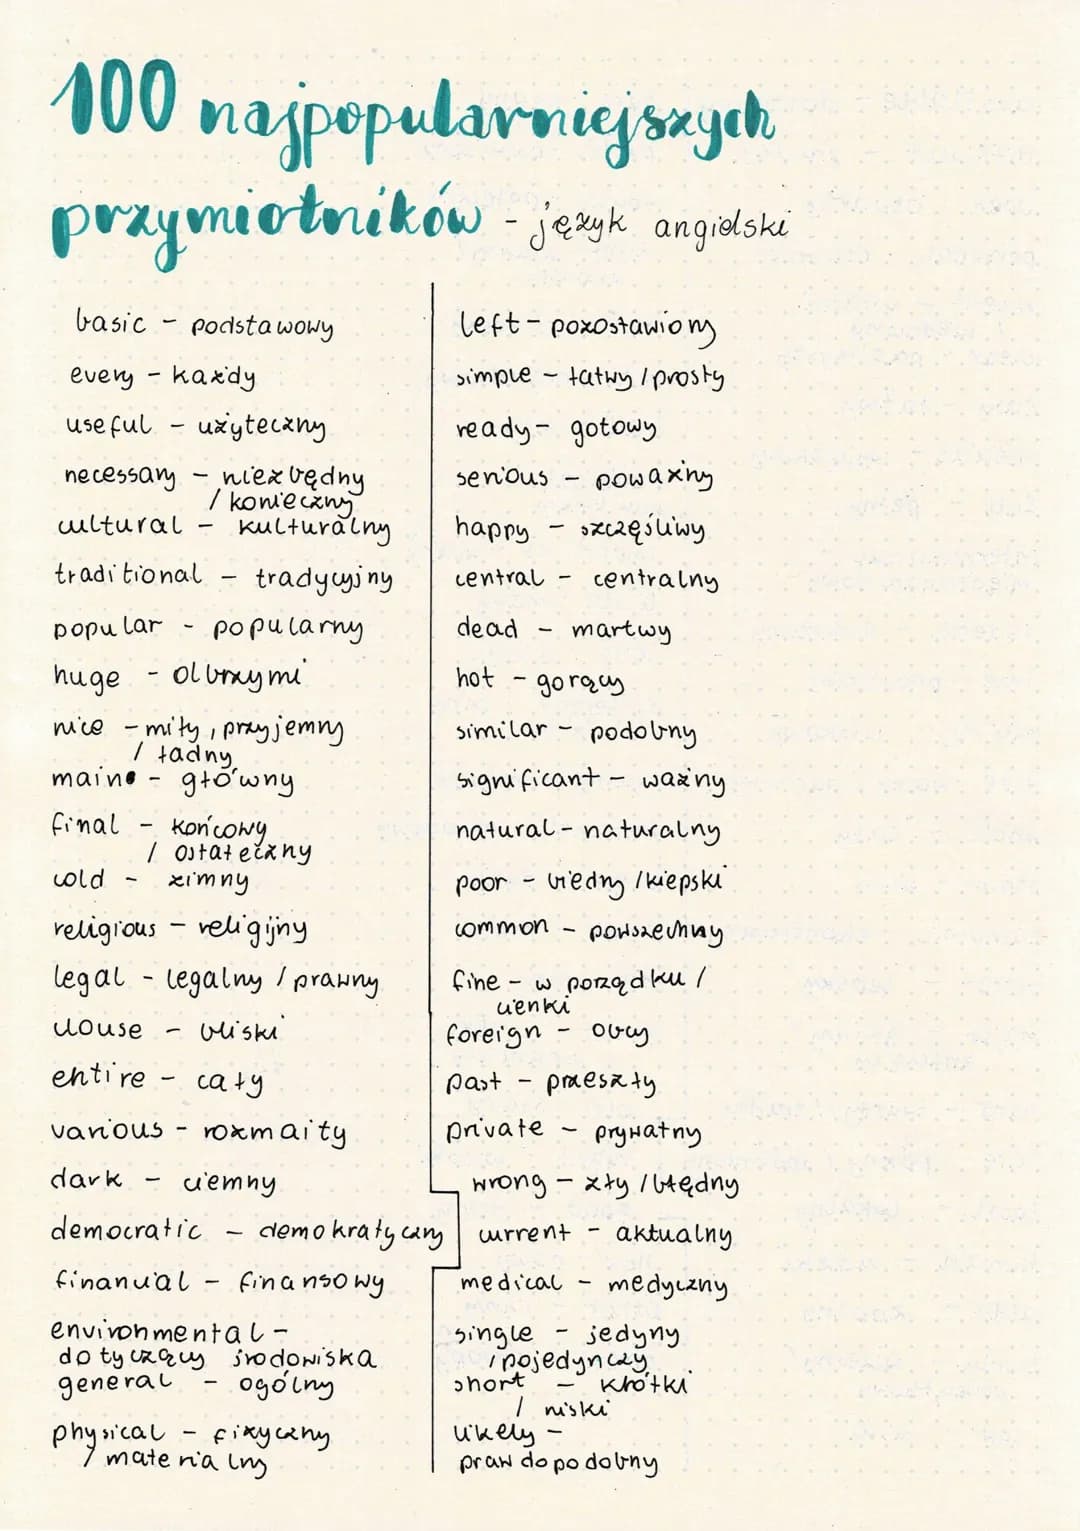 100 najpopularniejszych
przymiotników - język angielski
basic - podstawowy
every - każdy
useful - użyteczny
necessary - niezbędny
/ konieczny
cultural - kulturalny
traditional - tradycyjny
popular - popularny
huge - olbrzymi
nice - miły, przyjemny
/ ładny
main - główny
final - końcowy
/ ostateczny
cold - zimny
religious - religijny
legal - legalny / prawny
clouse - bliski
entire - cały
various - rozmaity
dark - ciemny
democratic - demokratyczny
financial - finansowy
environmental -
dotyczący środowiska
general - ogólny
physical - fizyczny
/ materialny
left - pozostawiony
simple - łatwy / prosty
ready - gotowy
serious - poważny
happy - szczęśliwy
central - centralny
dead - martwy
hot - gorący
similar - podobny
significant - ważny
natural - naturalny
poor - biedny / kiepski
common - powszechny
fine - w porządku /
cienki
foreign - obcy
past - przeszły
private - prywatny
wrong - zły / błędny
current - aktualny
medical - medyczny
single - jedyny
/ pojedynczy
short - krótki
/ niski
likely -
prawdopodobny